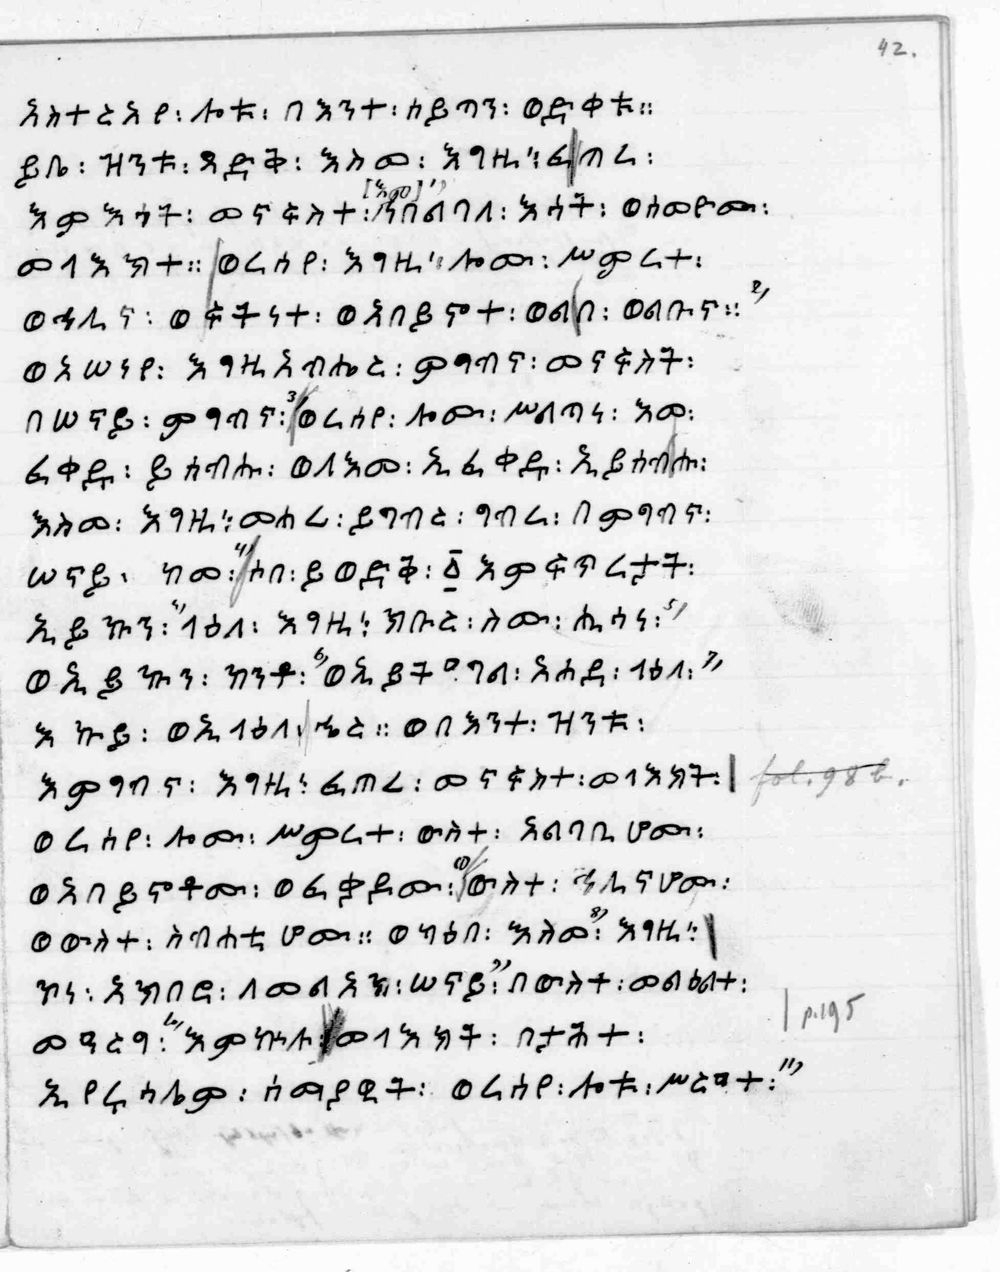 42.
አስተርአየ፡ ሎቱ፡ በእንተ፡ ሰይጣን፡ ወድቀቱ።
ይቤ፡ ዝንቱ፡ ጻድቅ፡ እስመ፡ እግዚ'፡ ፈጠረ፡
እምእሳት፡ መናፍስተ፡ [እመ]1) ነበልባለ፡ እሳት፡ ወሰመዮሙ፡
መላእክተ። ወረሰየ፡ እግዚ"፡ ሎሙ፡ ሥምረተ፡
ወኅሊና፡ ወፍትነተ፡ ወአበይኖተ፡ ወልበ፡ ወልቡና።2)
ወአሠነየ፡ እግዚአብሔር፡ ምግብና፡ መናፍስት፡
በሠናይ፡ ምግብና፡3) ወረሰየ፡ ሎሙ፡ ሥልጣነ፡ እመ፡
ፈቀዱ፡ ይሰብሑ፡ ወለእመ፡ ኢፈቀዱ፡ ኢይሰብሑ፡
እስመ፡ እግዚ'፡ መሐረ፡ ይግብር፡ ግብረ፡ በምግብና፡
ሠናይ፡ ከመ፡4) ሶበ፡ ይወድቅ፡ ፩ እምፍጥረታት፡
ኢይኩን፡ ላዕለ፡ እግዚ'፡ ክቡር፡ ስሙ፡ ሒሳነ፡5)
ወኢይኩን፡ ከንቶ፡6) ወኢይትዐገል፡ አሐዱ፡ ላዕለ፡7)
እኩይ፡ ወኢላዕለ፡ ኄር። ወበእንተ፡ ዝንቱ፡
እምግብና፡ እግዚ'፡ ፈጠረ፡ መናፍስተ፡ መላእክት፡ | fol. 98 b.
ወረሰየ፡ ሎሙ፡ ሥምረተ፡ ውስተ፡ አልባቢሆሙ፡
ወአበይኖቶሙ፡ ወፈቃዶሙ፡ ውስተ፡ ኅሊናሆሙ፡
ወውስተ፡ ስብሐቲሆሙ። ወካዕበ፡ እስመ፡8) እግዚ'፡ |
ኮነ፡ አክበሮ፡ ለመልአኩ፡ ሠናይ፡9) በውስተ፡ መልዕልተ፡
መዓርግ፡ እምኵሉ፡ መላእክት፡ በታሕተ፡ | p. 195
ኢየሩሳሌም፡ ሰማያዊት፡ ወረሰየ፡ ሎቱ፡ ሥርዓተ፡11)